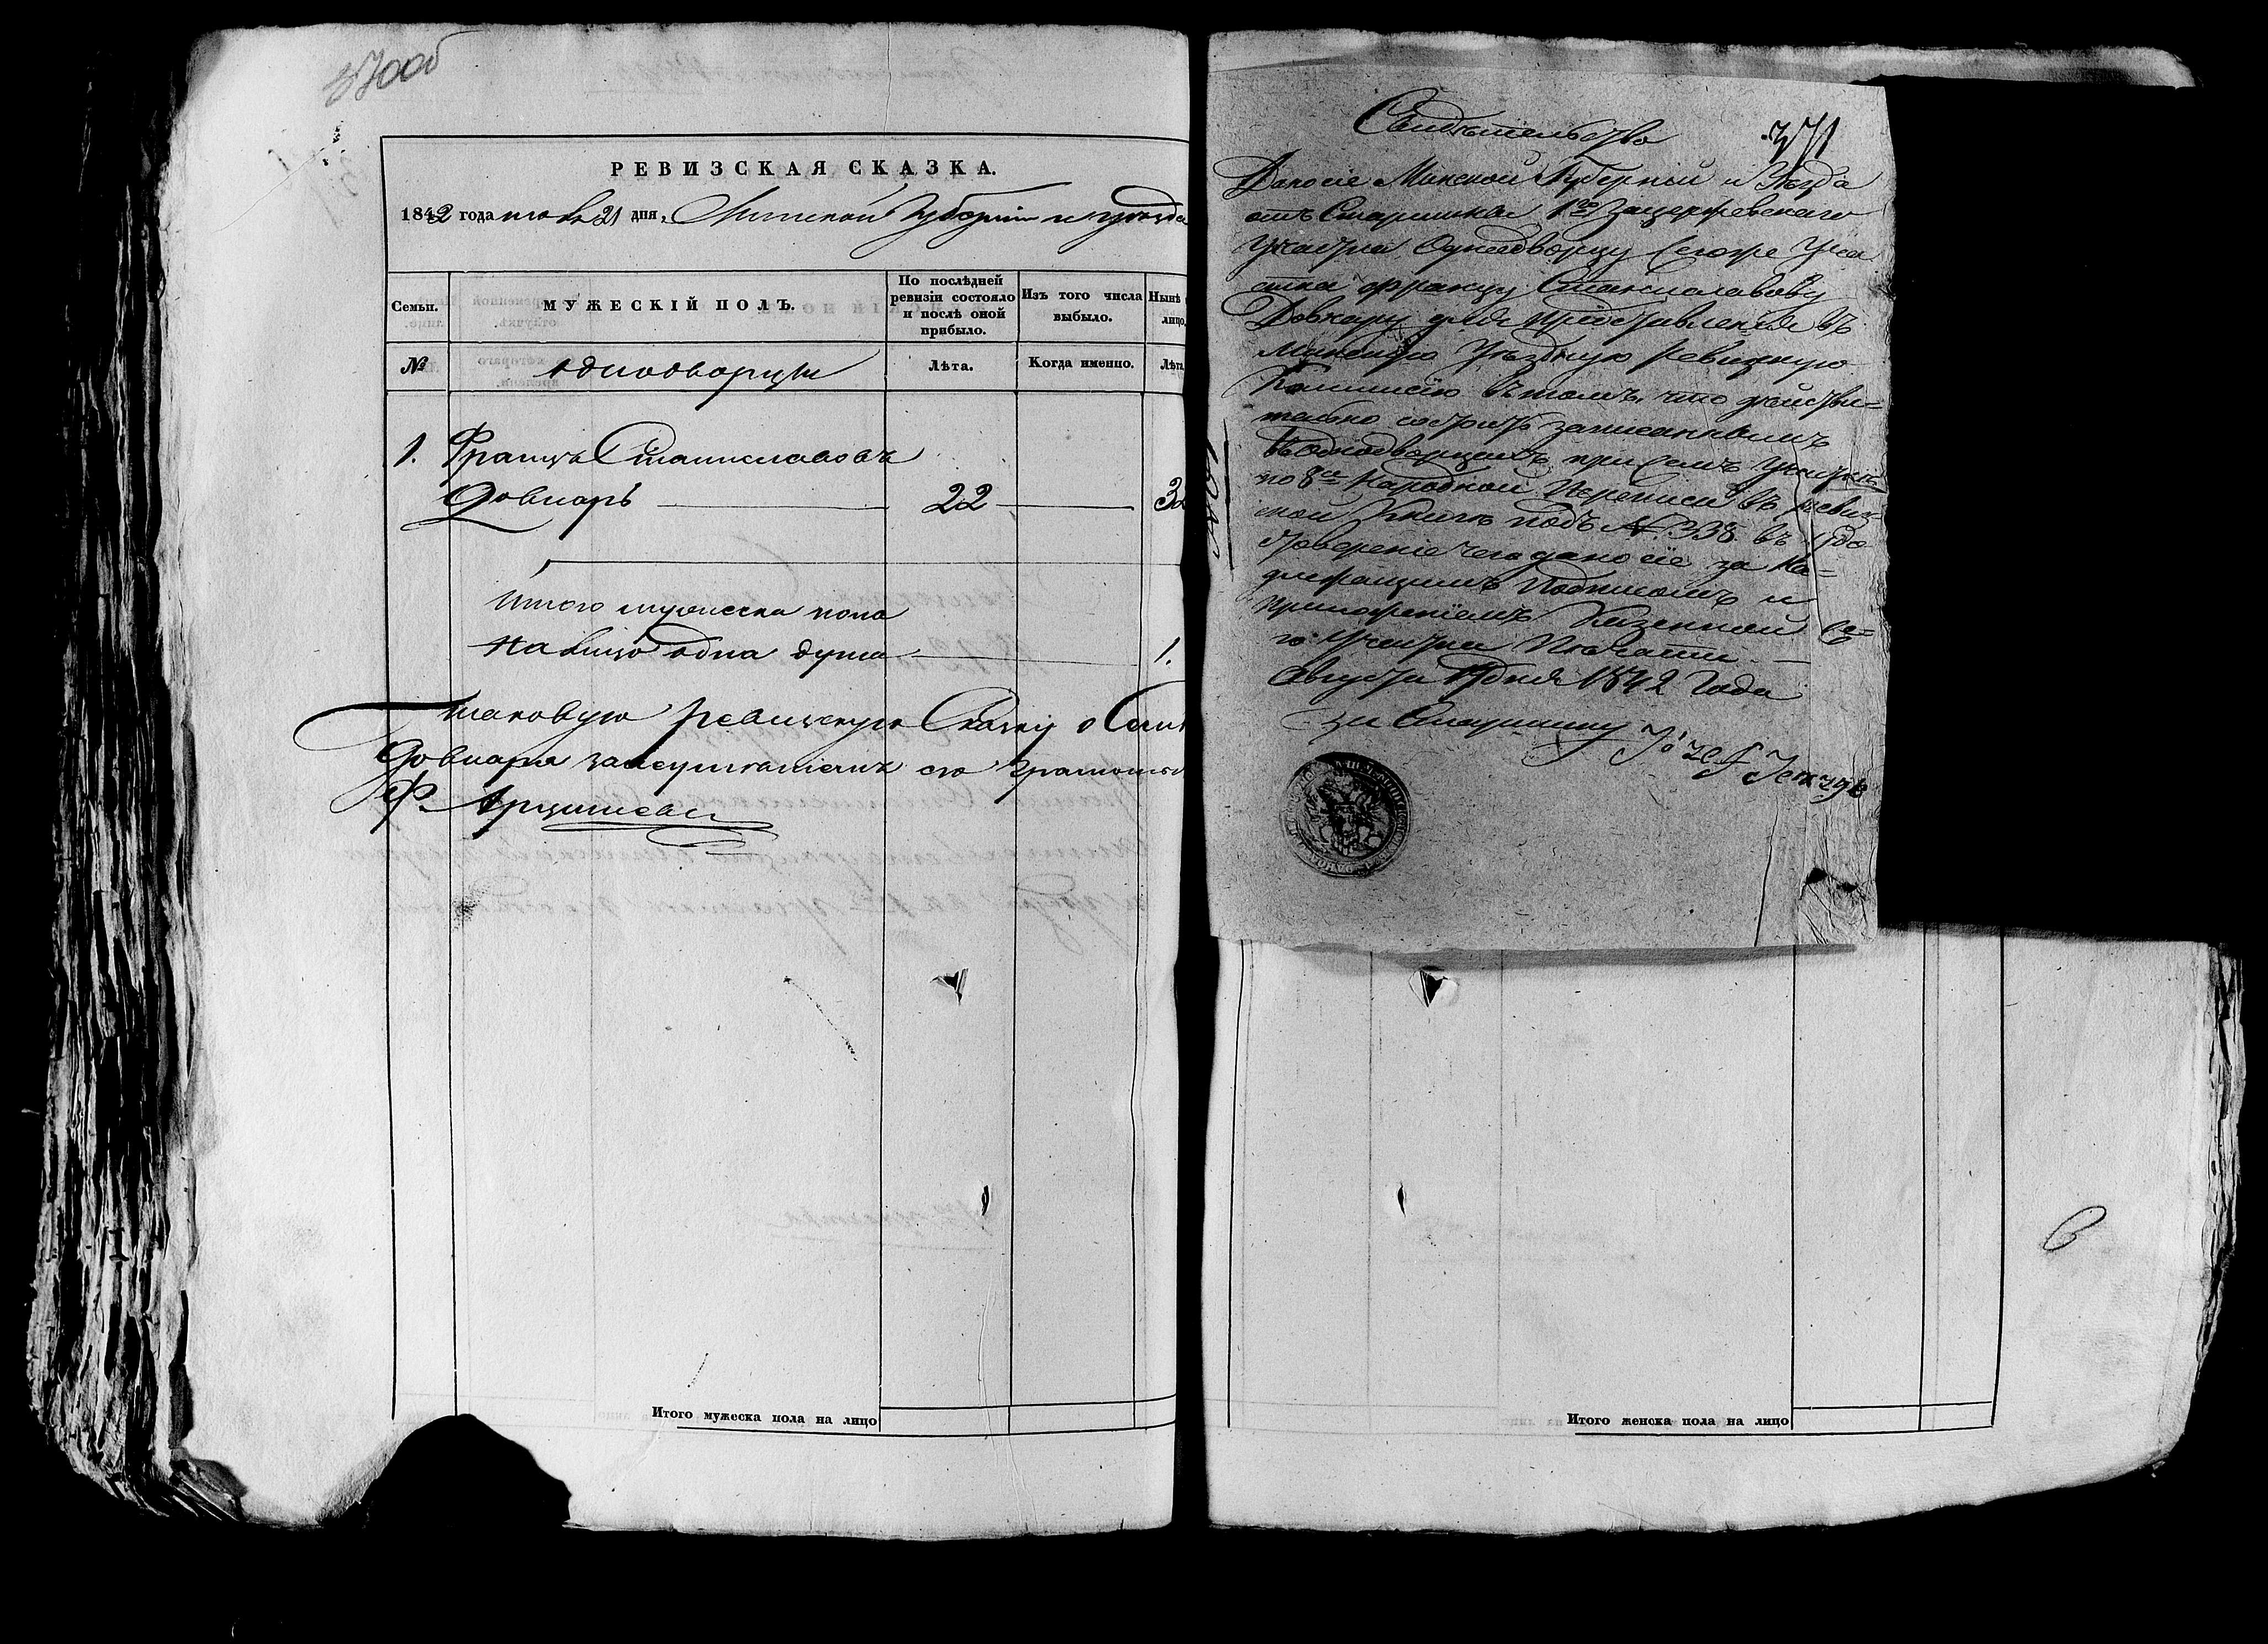 370об
РЕВИЗСКАЯ СКАЗКА.
1842 года июля 21 дня, Минской Губернии и уезда
Семьи.
МУЖЕСКІЙ ПОЛЪ.
По послѣдней ревизіи состояло и послѣ оной прибыло.
Изъ того числа выбыло.
Нынѣ
лицо,
№
однодворцы
Лѣта.
Когда именно.
Лѣта
1. Францъ Станиславовъ
Довнаръ 22
Итого мужеска пола
на лицо одна душа 1.
таковую ревизскую Сказку о
Довнара за неумѣніемъ его грамоты
Итого мужеска пола на лицо
Свидѣтельство
371
Дано сіе Минской Губерніи и Уѣзда
отъ Старшины 1го
участка Однодворцу сегоже Уча
стка Францу Станиславову
Довнару для представленія въ
Минскую Уѣздную Ревизскую
Коммисію въ томъ, что дѣйстви=
тельно состоитъ записаннымъ
въ однодворцахъ при семъ Участкѣ
по 8й Народной Переписи въ ревиз=
ской Книгѣ подъ № 338. въ удо
стовереніе чего дано сіе за На=
длежащимъ Подписомъ и
приложеніемъ Казенной се=
го Участка Печати. —
Августа дня 1842 Года
за Старшину
Итого женска пола на лицо